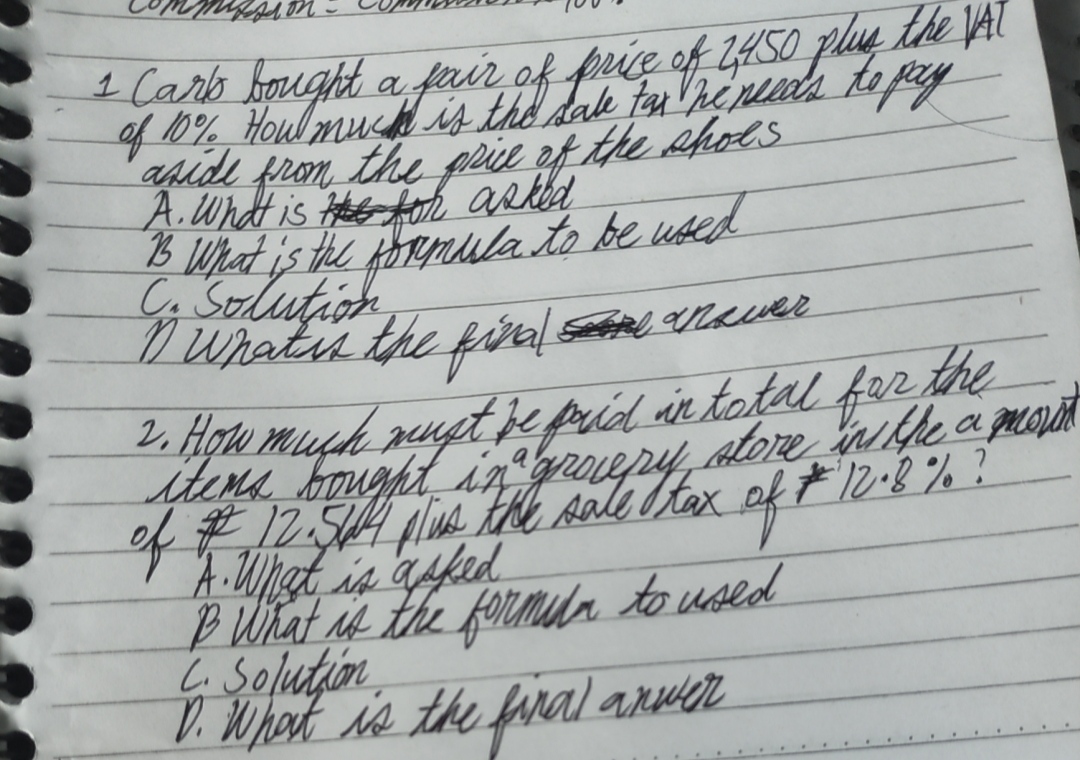 Commission =
1 Carlo bought a pair of price of 2,450 plus the VAT
of 10%. How much is the sale tax he needs to pay
aside from the price of the shoes
A. What is asked
B What is the formula to be used
C. Solution
D What is the final answer
2. How much must be paid in total for the
items bought in a grocery store in the amount
of ₱ plus the sale tax of ₱ 12.8%?
A. What is asked
B What is the formula to used
C. Solution
D. What is the final anwer